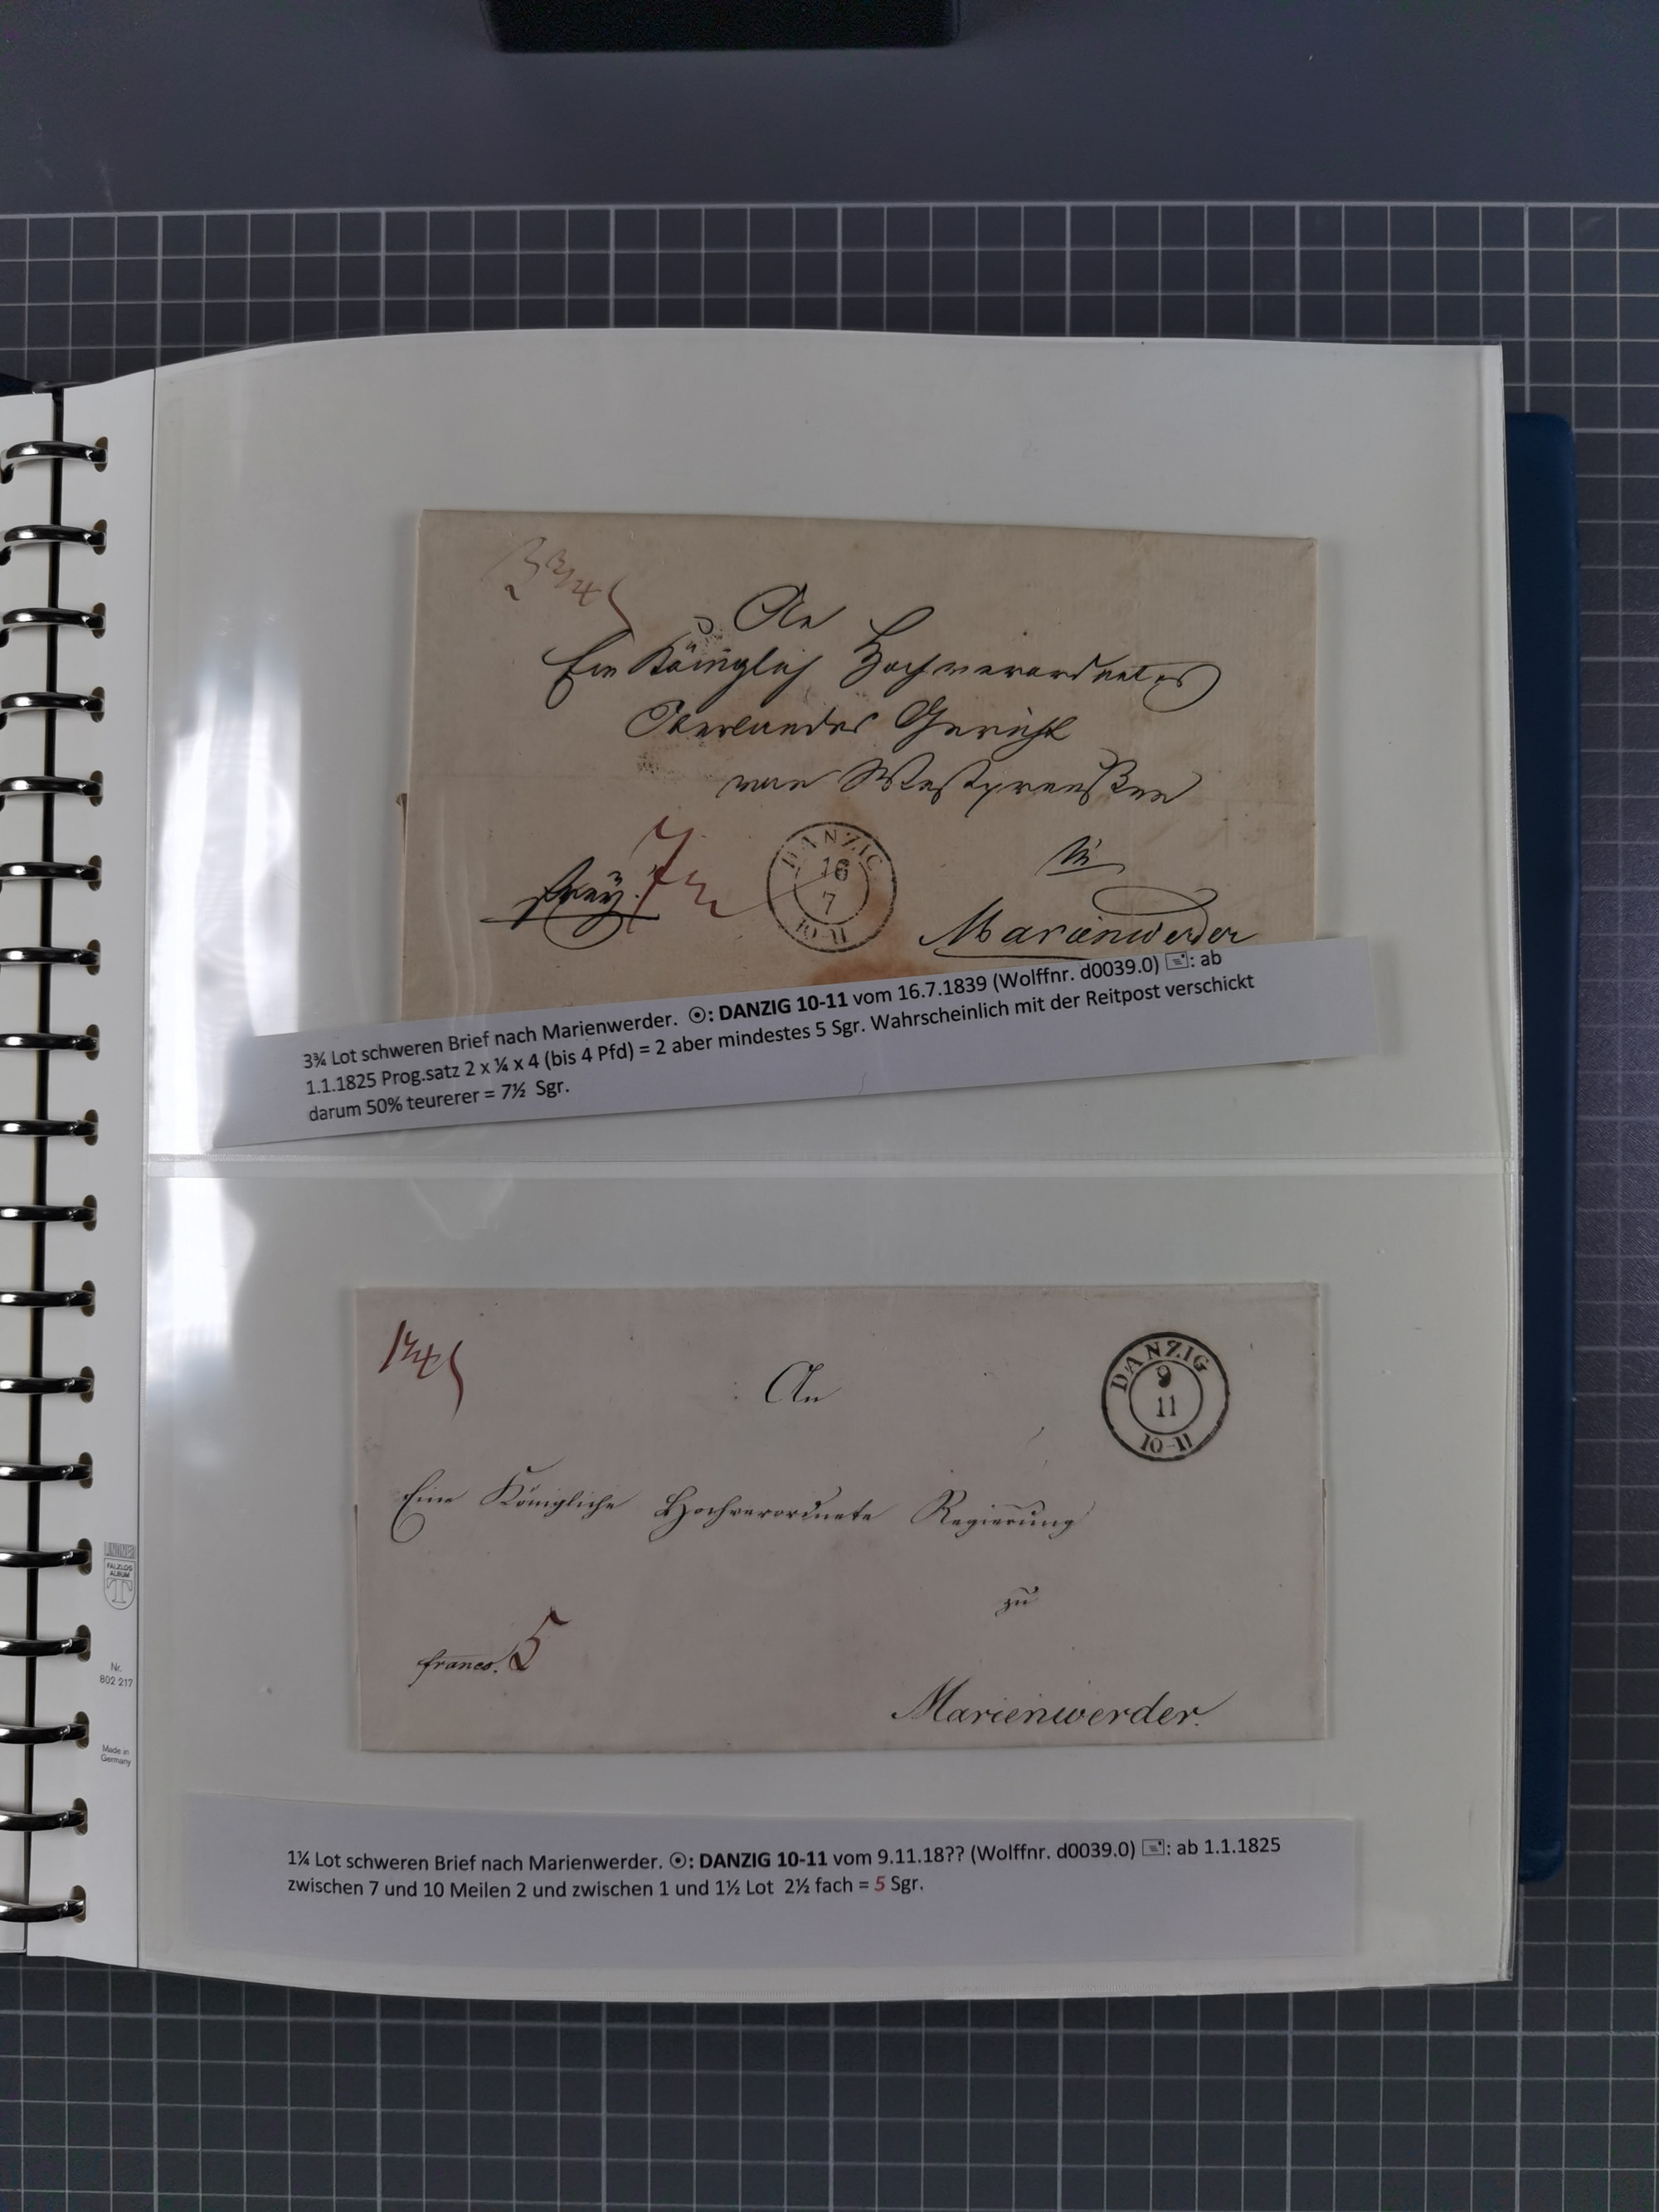 3¾
An
Ein Königlich Hochverordnetes
Oberlandes Gericht
von Westpreußen
frey.
7½
DANZIG
16
7
10-11
in
Marienwerder
3¾ Lot schweren Brief nach Marienwerder. ☉: DANZIG 10-11 vom 16.7.1839 (Wolffnr. d0039.0) 🖃: ab
1.1.1825 Prog.satz 2 x ¼ x 4 (bis 4 Pfd) = 2 aber mindestes 5 Sgr. Wahrscheinlich mit der Reitpost verschickt
darum 50% teurerer = 7½ Sgr.
1¼
An
DANZIG
9
11
10-11
Eine Königliche Hochverordnete Regierung
zu
franco.
5
Marienwerder.
LINDNER
FALZLOS
ALBUM
T
Nr.
802 217
Made in
Germany
1¼ Lot schweren Brief nach Marienwerder. ☉: DANZIG 10-11 vom 9.11.18?? (Wolffnr. d0039.0) 🖃: ab 1.1.1825
zwischen 7 und 10 Meilen 2 und zwischen 1 und 1½ Lot 2½ fach = 5 Sgr.